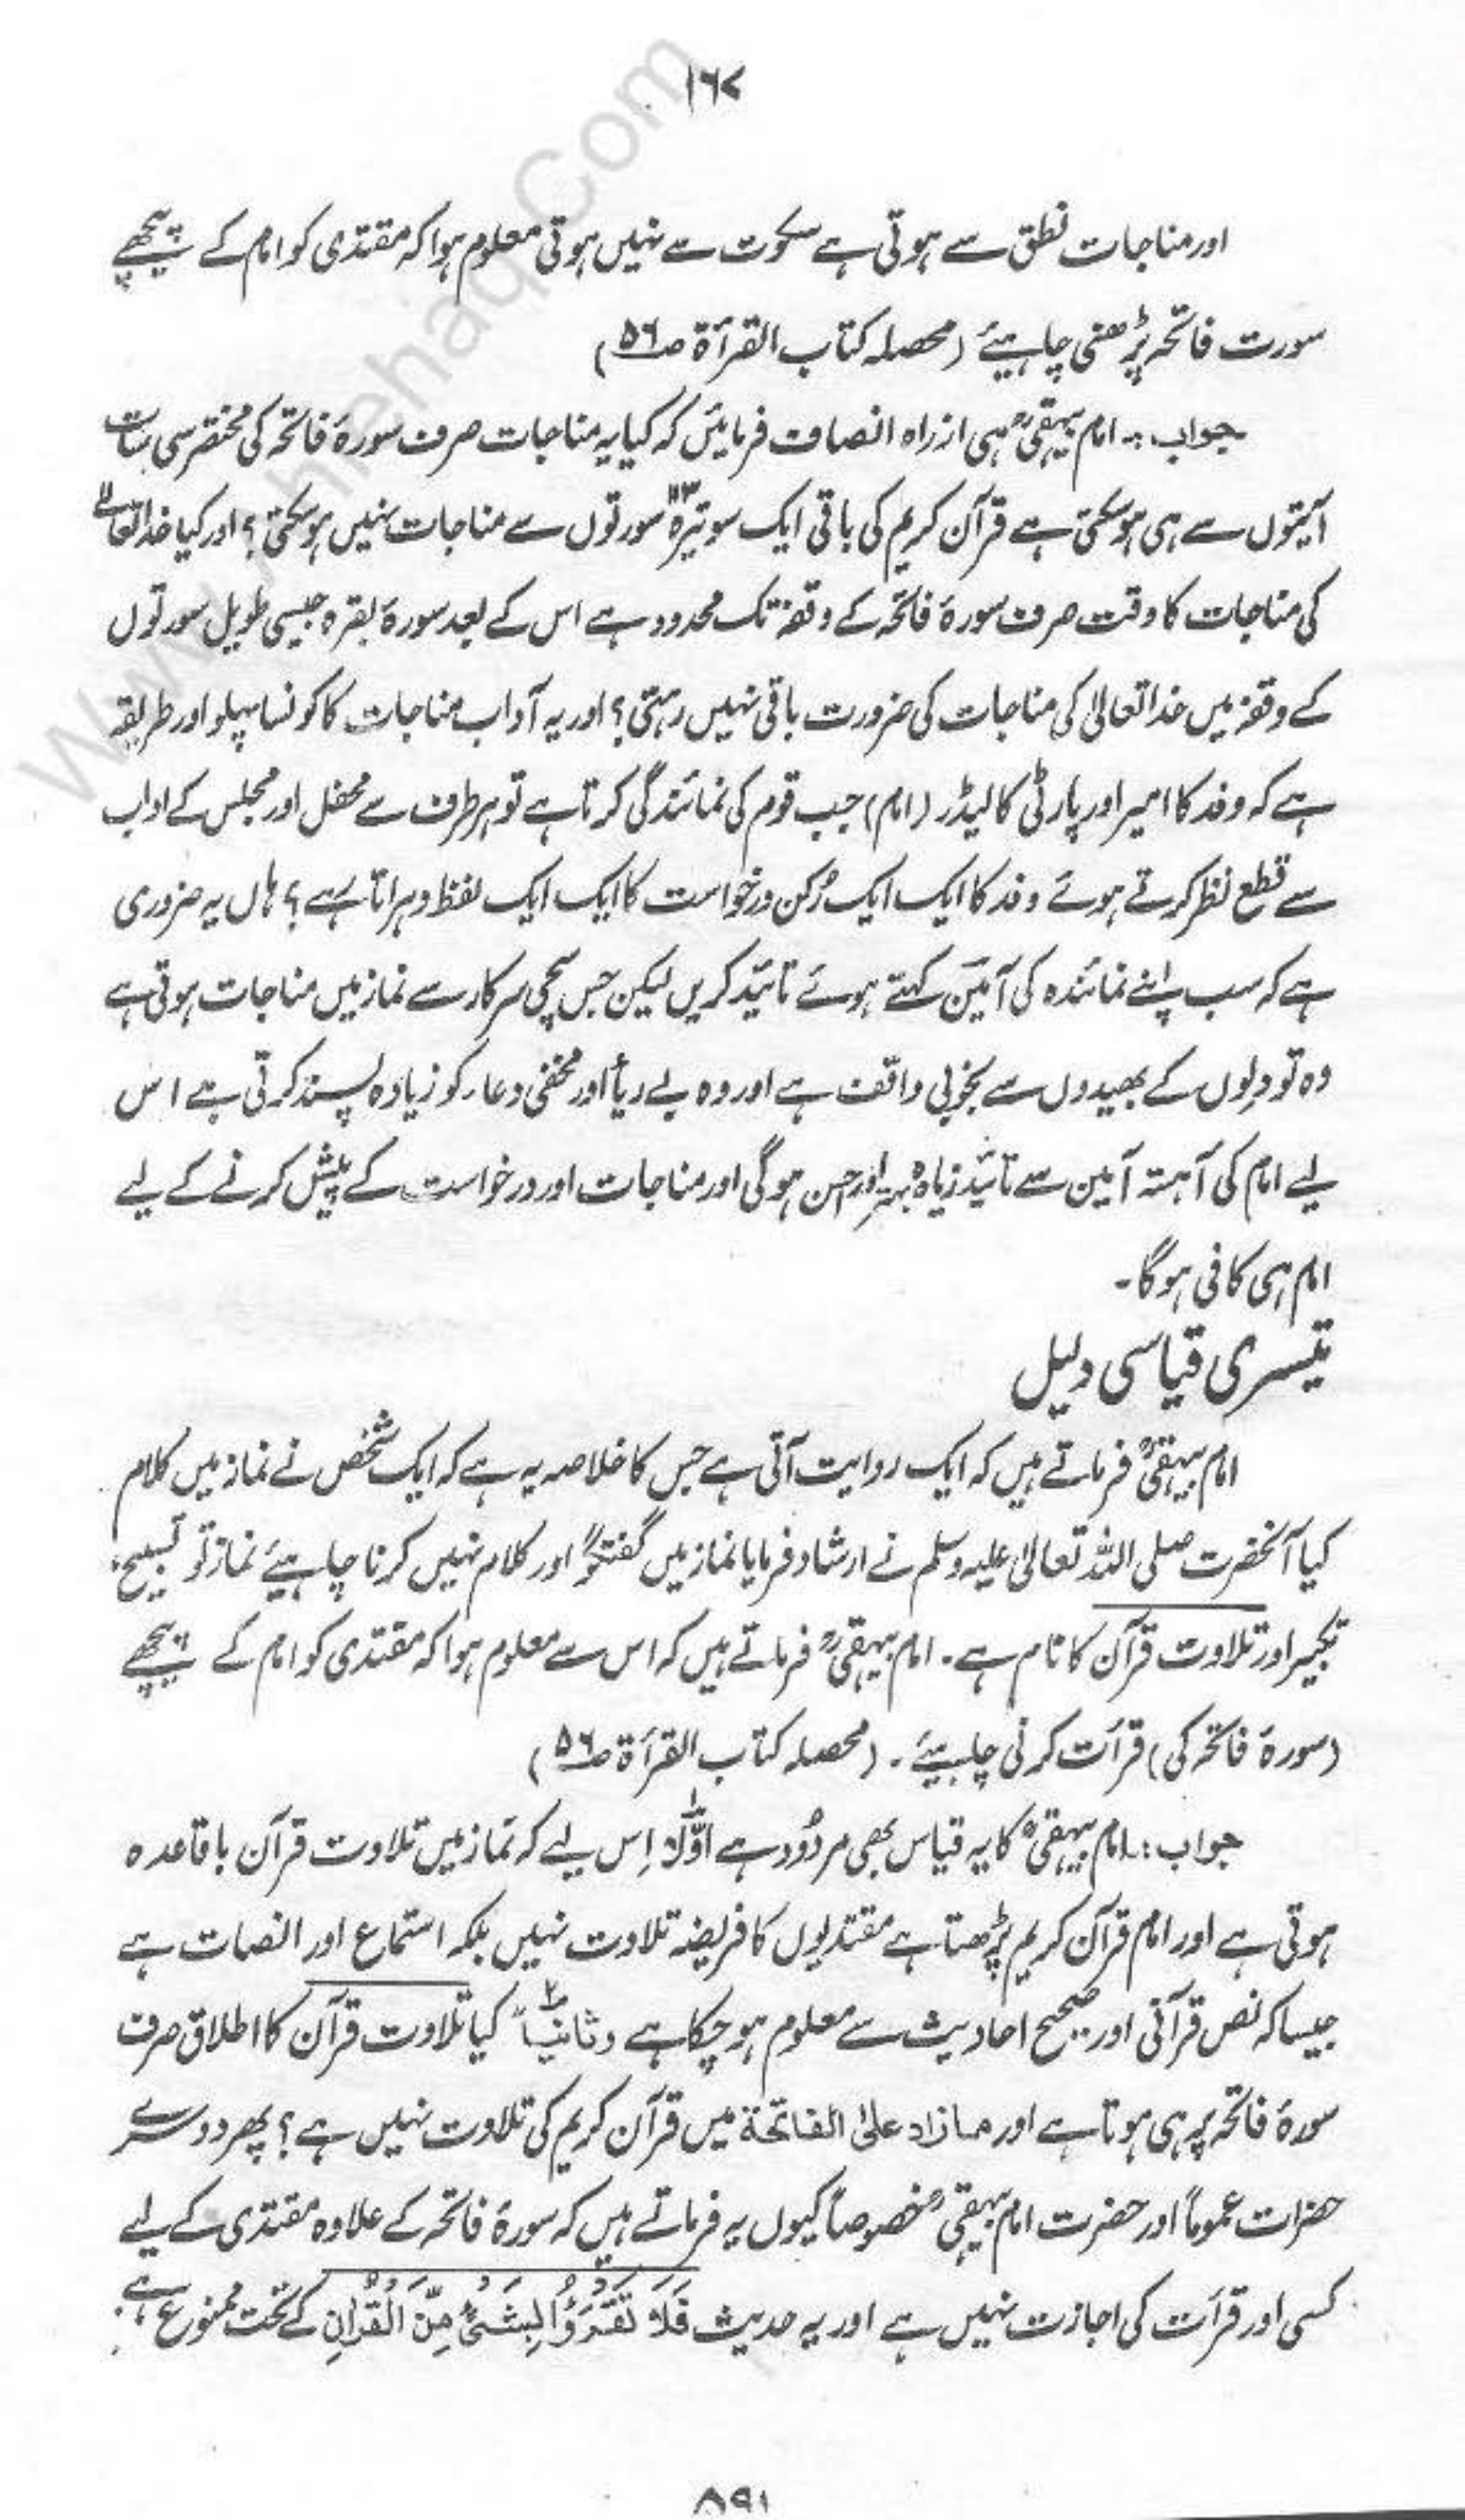 ۱۶۷
اور مناجات نطق سے ہوتی ہے سکوت سے نہیں ہوتی معلوم ہوا کہ مقتدی کو امام کے پیچھے
سورت فاتحہ پڑھنی چاہیئے (محصلہ کتاب القرأۃ ص۵۶)
جواب:۔ امام بیہقیؒ ہی از راہ انصاف فرمائیں کہ کیا یہ مناجات صرف سورۂ فاتحہ کی مختصر سی سات
آیتوں سے ہی ہو سکتی ہے قرآن کریم کی باقی ایک سو تیرہ ۱۱۳ سورتوں سے مناجات نہیں ہو سکتی؟ اور کیا خدا تعالےٰ
کی مناجات کا وقت صرف سورۂ فاتحہ کے وقفہ تک محدود ہے اس کے بعد سورۂ بقرہ جیسی طویل سورتوں
کے وقفہ میں خدا تعالیٰ کی مناجات کی ضرورت باقی نہیں رہتی؟ اور یہ آداب مناجات کا کونسا پہلو اور طریقہ
ہے کہ وفد کا امیر اور پارٹی کا لیڈر (امام) جب قوم کی نمائندگی کرتا ہے تو ہر طرف سے محفل اور مجلس کے اداب
سے قطع نظر کرتے ہوئے وفد کا ایک ایک رُکن درخواست کا ایک ایک لفظ دہراتا ہے؟ ہاں یہ ضروری
ہے کہ سب اپنے نمائندہ کی آمین کہتے ہوئے تائید کریں لیکن جس سچی سرکار سے نماز میں مناجات ہوتی ہے
وہ تو دِلوں کے بھیدوں سے بخوبی واقف ہے اور وہ بے ریأ اور مخفی دعاء کو زیادہ پسند کرتی ہے اس
لیے امام کی آہستہ آمین سے تائید زیادہ بہتر اور احسن ہوگی اور مناجات اور درخواست کے پیش کرنے کے لیے
امام ہی کافی ہوگا۔
تیسری قیاسی دلیل
امام بیہقیؒ فرماتے ہیں کہ ایک روایت آتی ہے جس کا خلاصہ یہ ہے کہ ایک شخص نے نماز میں کلام
کیا آنحضرت صلی اللہ تعالیٰ علیہ وسلم نے ارشاد فرمایا نماز میں گفتگو اور کلام نہیں کرنا چاہیئے نماز تو تسبیح،
تکبیر اور تلاوت قرآن کا نام ہے۔ امام بیہقیؒ فرماتے ہیں کہ اس سے معلوم ہوا کہ مقتدی کو امام کے پیچھے
(سورۂ فاتحہ کی) قرأت کرنی چاہیئے۔ (محصلہ کتاب القرأۃ ص۵۶)
جواب:۔ امام بیہقیؒ کا یہ قیاس بھی مردُود ہے اوّلاً اِس لیے کہ نماز میں تلاوت قرآن باقاعدہ
ہوتی ہے اور امام قرآن کریم پڑھتا ہے مقتدیوں کا فریضہ تلاوت نہیں بلکہ استماع اور انصات ہے
جیسا کہ نص قرآنی اور صحیح احادیث سے معلوم ہو چکا ہے وثانیاً کیا تلاوت قرآن کا اطلاق صرف
سورۂ فاتحہ پر ہی ہوتا ہے اور مازاد علی الفاتحۃ میں قرآن کریم کی تلاوت نہیں ہے؟ پھر دوسرے
حضرات عموماً اور حضرت امام بیہقیؒ خصوصاً کیوں یہ فرماتے ہیں کہ سورۂ فاتحہ کے علاوہ مقتدی کے لیے
کسی اور قرأت کی اجازت نہیں ہے اور یہ حدیث فَلَا تَقْرَءُوْا بِشَیْءٍ مِّنَ الْقُرْاٰنِ کے تحت ممنوع ہے۔
۸۹۱